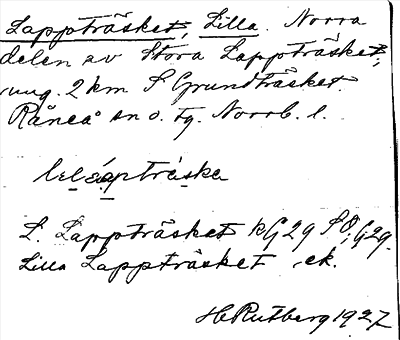 Lappträsket, Lilla. Norra
delen av Stora Lappträsket,
ung. 2 km S Grundträsket.
Råneå sn o. tg. Norrb. l.
L. Lappträsket kG29 S8, G29.
Lilla Lappträsket ek.
H Rutberg 1927